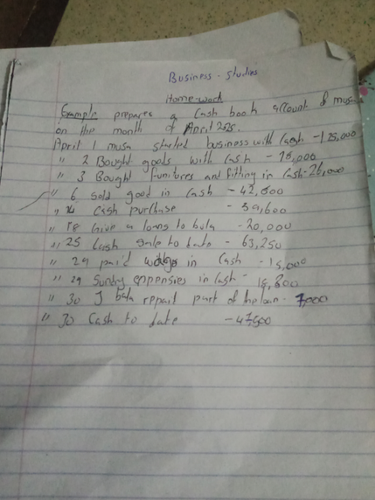 Business - studies
Home work
Example prepare a Cash book account of musa
on the month of April 2025.
April 1 musa started business with Cash - 125,000
" 2 Bought goods with cash - 78,000
" 3 Bought furnitures and fitting in Cash - 26,000
" 6 Sold good in cash - 43,000
" Cash purchase - 39,600
" 18 Give a loans to bala - 20,000
" 25 Cash sale to date - 63,250
" 29 paid wages in Cash - 15,000
" 29 Sundry expenses in Cash - 19,800
" 30 J bala repaid part of the loan - 7,000
" 30 Cash to date